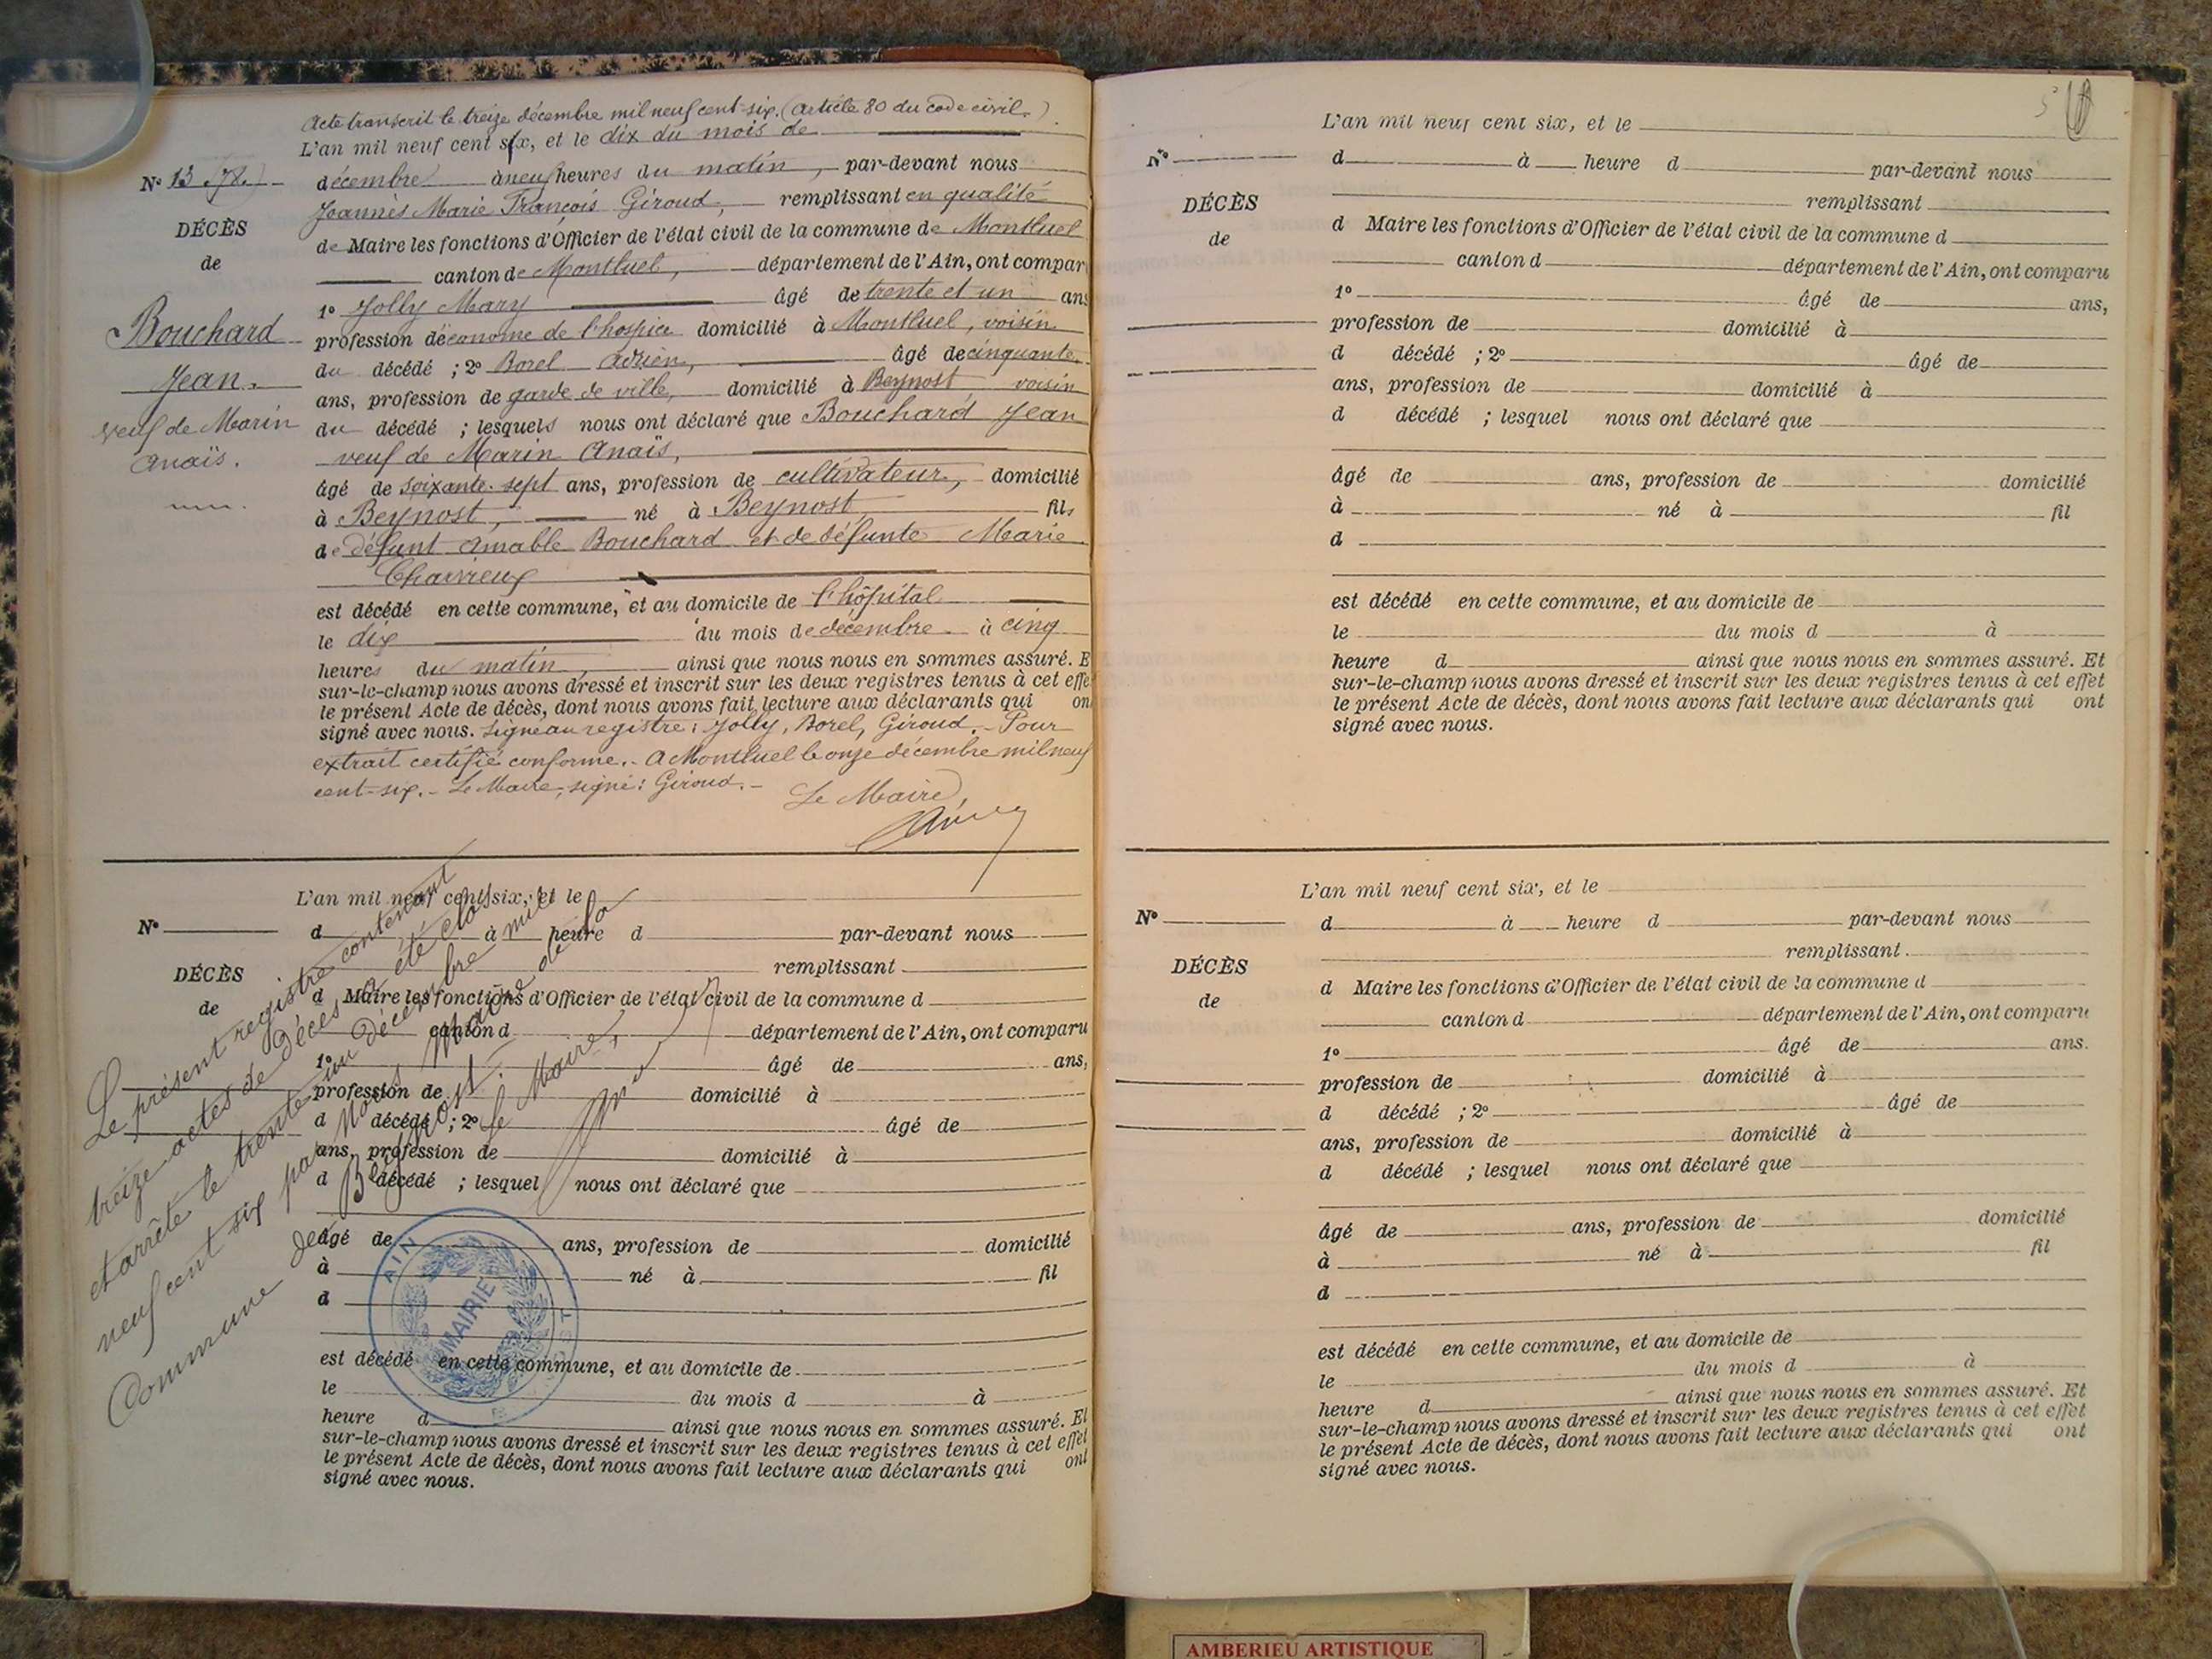 Acte transcrit le treize décembre mil neuf cent-six. (Article 80 du code civil.)
L'an mil neuf cent six, et le dix du mois de
N° 13
décembre à neuf heures du matin, par-devant nous
Jeannès Marie François Giroud, remplissant en qualité
DÉCÈS
de Maire les fonctions d'Officier de l'état civil de la commune de Montluel
de
canton de Montluel, département de l'Ain, ont compar
1° Jolly Mary âgé de trente et un ans
Bouchard
profession d'économe de l'hospice domicilié à Montluel, voisin
du décédé ; 2° Borel Adrien, âgé de cinquante
Jean.
ans, profession de garde de ville, domicilié à Beynost voisin
veuf de Marin
du décédé ; lesquels nous ont déclaré que Bouchard Jean
Anaïs.
veuf de Marin Anaïs,
âgé de soixante-sept ans, profession de cultivateur, domicilié
à Beynost, né à Beynost fils
de défunt Amable Bouchard et de défunte Marie
Charvieux
est décédé en cette commune, et au domicile de l'hôpital
le dix du mois de décembre à cinq
heures du matin, ainsi que nous nous en sommes assuré. E
sur-le-champ nous avons dressé et inscrit sur les deux registres tenus à cet effe
le présent Acte de décès, dont nous avons fait lecture aux déclarants qui on
signé avec nous. Signé au registre : Jolly, Borel, Giroud. - Pour
extrait certifié conforme. - A Montluel le onze décembre mil neuf
cent-six. - Le Maire, signé : Giroud. -
Le Maire,
L'an mil neuf cent six, et le
N°
d à heure d par-devant nous
remplissant
DÉCÈS
de
d Maire les fonctions d'Officier de l'état civil de la commune d
canton d département de l'Ain, ont comparu
1° âgé de ans,
profession de domicilié à
d décédé ; 2° âgé de
ans, profession de domicilié à
d décédé ; lesquel nous ont déclaré que
âgé de ans, profession de domicilié
à né à fil
d
est décédé en cette commune, et au domicile de
le du mois d à
heure d ainsi que nous nous en sommes assuré. Et
sur-le-champ nous avons dressé et inscrit sur les deux registres tenus à cet effet
le présent Acte de décès, dont nous avons fait lecture aux déclarants qui ont
signé avec nous.
Le présent registre contenant
treize actes de décès a été clos
et arrêté le trente un décembre mil
neuf cent six par Nous Maire de la
Commune de Beynost.
Le Maire,
AIN
MAIRIE
L'an mil neuf cent six, et le
N°
d à heure d par-devant nous
remplissant
DÉCÈS
de
d Maire les fonctions d'Officier de l'état civil de la commune d
canton d département de l'Ain, ont comparu
1° âgé de ans,
profession de domicilié à
d décédé ; 2° âgé de
ans, profession de domicilié à
d décédé ; lesquel nous ont déclaré que
âgé de ans, profession de domicilié
à né à fil
d
est décédé en cette commune, et au domicile de
le du mois d à
heure d ainsi que nous nous en sommes assuré. Et
sur-le-champ nous avons dressé et inscrit sur les deux registres tenus à cet effet
le présent Acte de décès, dont nous avons fait lecture aux déclarants qui ont
signé avec nous.
L'an mil neuf cent six, et le
N°
d à heure d par-devant nous
remplissant
DÉCÈS
de
d Maire les fonctions d'Officier de l'état civil de la commune d
canton d département de l'Ain, ont comparu
1° âgé de ans.
profession de domicilié à
d décédé ; 2° âgé de
ans, profession de domicilié à
d décédé ; lesquel nous ont déclaré que
âgé de ans, profession de domicilié
à né à fil
d
est décédé en cette commune, et au domicile de
le du mois d à
heure d ainsi que nous nous en sommes assuré. Et
sur-le-champ nous avons dressé et inscrit sur les deux registres tenus à cet effet
le présent Acte de décès, dont nous avons fait lecture aux déclarants qui ont
signé avec nous.
AMBERIEU ARTISTIQUE